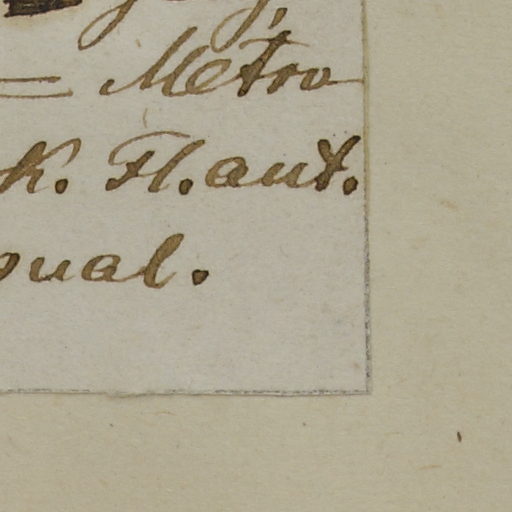 = Metro
K. Fl. ant.
oual.